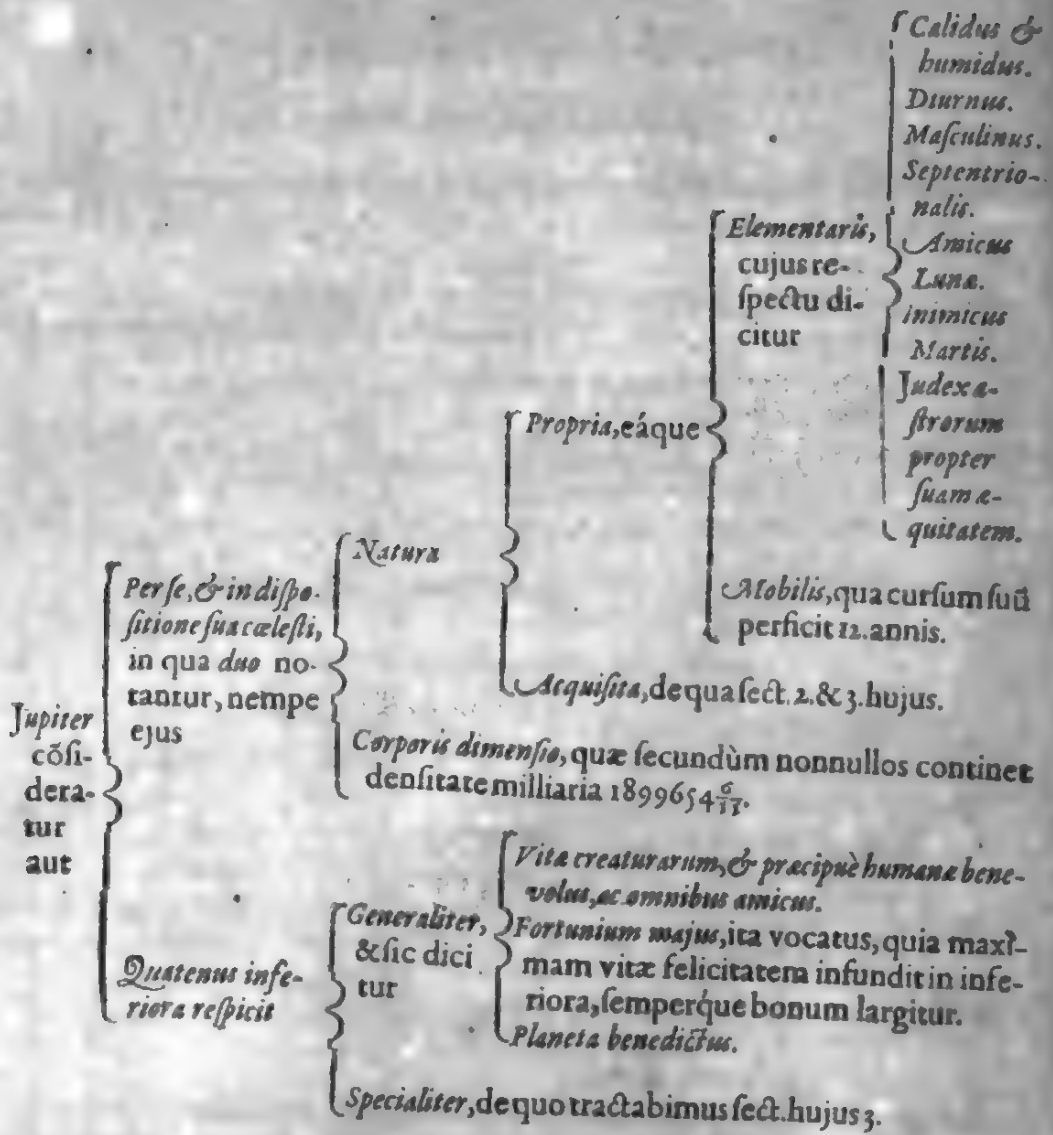 Jupiter
cõſi-
dera-
tur
aut
Per ſe, & in diſpo-
ſitione ſua cæleſti,
in qua duo no-
tantur, nempe
ejus
Natura
Propria, eáque
Elementaris,
cujus re-
ſpectu di-
citur
Calidus &
humidus.
Diurnus.
Maſculinus.
Septentrio-
nalis.
Amicus
Lunæ.
inimicus
Martis.
Judex a-
ſtrorum
propter
ſuam æ-
quitatem.
Mobilis, qua curſum ſuũ
perficit 12. annis.
Acquiſita, de qua ſect. 2. & 3. hujus.
Corporis dimenſio, quæ ſecundùm nonnullos continet
denſitate milliaria 1899654 6/11.
Quatenus infe-
riora reſpicit
Generaliter,
& ſic dici
tur
Vitæ creaturarum, & præcipuè humanæ bene-
volus, ac omnibus amicus.
Fortunium majus, ita vocatus, quia maxi-
mam vitæ felicitatem infundit in infe-
riora, ſemperq́ue bonum largitur.
Planeta benedictus.
Specialiter, de quo tractabimus ſect. hujus 3.